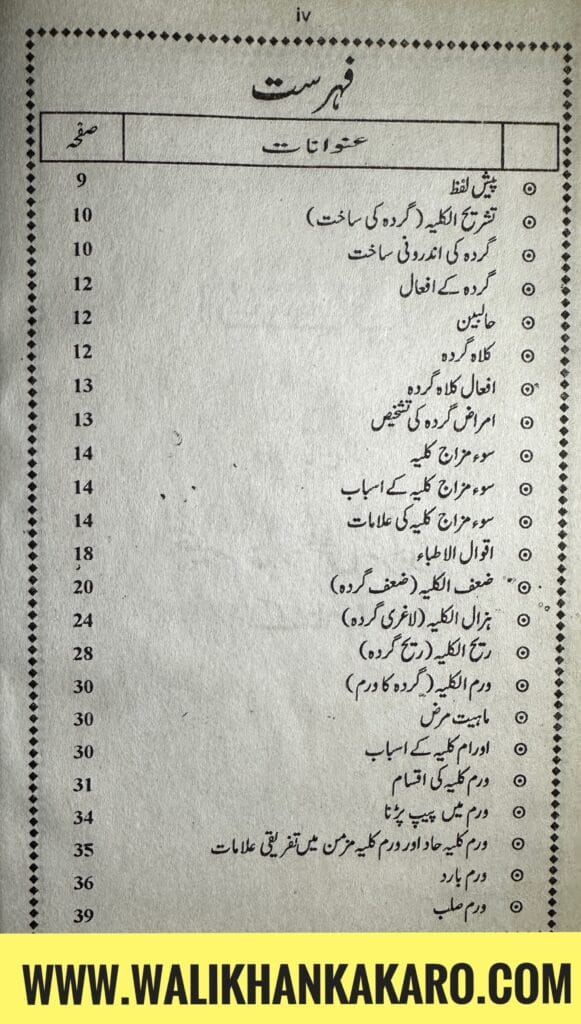 iv
فہرست
عنوانات صفحہ
پیش لفظ 9
تشریح الکلیہ (گردہ کی ساخت) 10
گردہ کی اندرونی ساخت 10
گردہ کے افعال 12
حالبین 12
کلاہ گردہ 12
افعال کلاہ گردہ 13
امراض گردہ کی تشخیص 13
سوء مزاج کلیہ 14
سوء مزاج کلیہ کے اسباب 14
سوء مزاج کلیہ کی علامات 14
اقوال الاطباء 18
ضعف الکلیہ (ضعف گردہ) 20
ہزال الکلیہ (لاغری گردہ) 24
ریح الکلیہ (ریح گردہ) 28
ورم الکلیہ (گردہ کا ورم) 30
ماہیت مرض 30
اورام کلیہ کے اسباب 30
ورم کلیہ کی اقسام 31
ورم میں پیپ پڑنا 34
ورم کلیہ حاد اور ورم کلیہ مزمن میں تفریقی علامات 35
ورم بارد 36
ورم صلب 39
WWW.WALIKHANKAKARO.COM